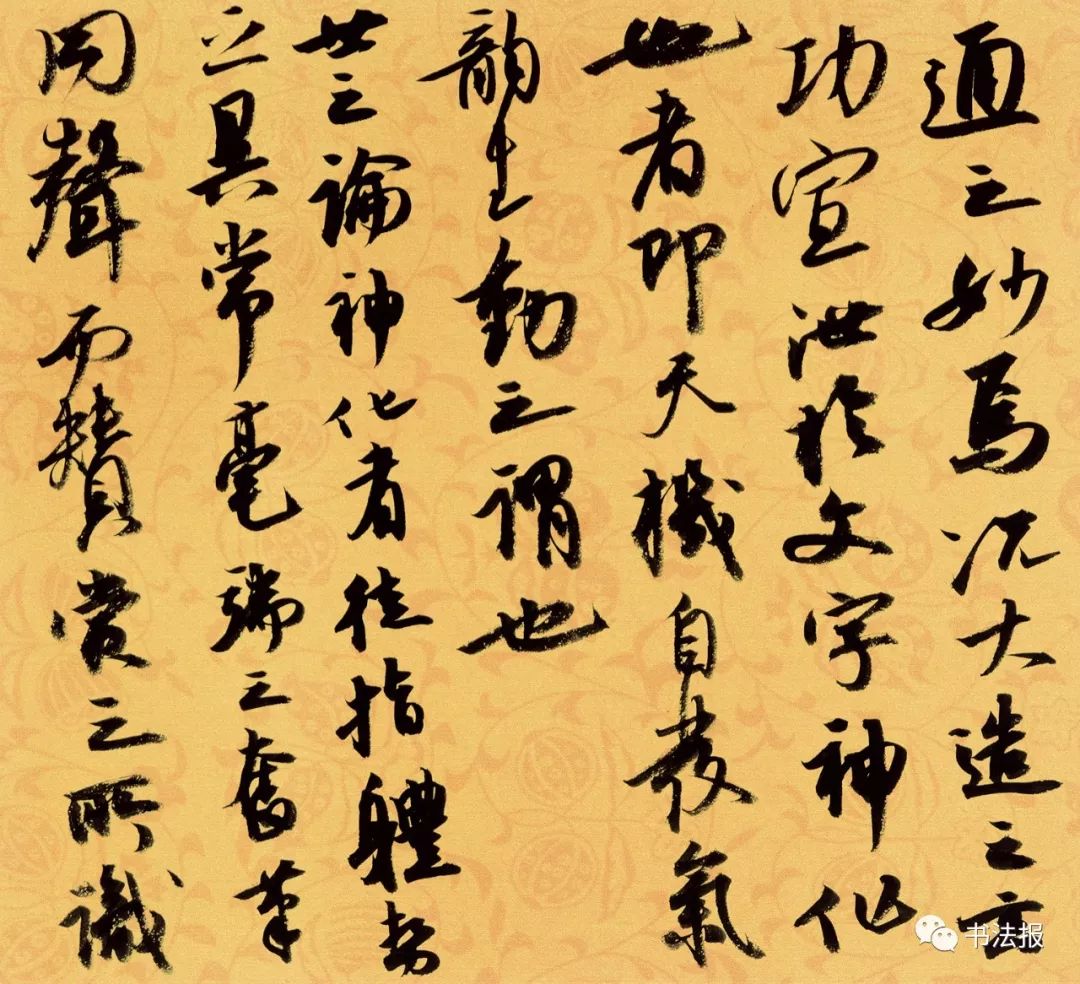 通之妙焉况大造之玄
功宣泄於文字神化
也者即天機自發氣
韵生動之謂也
世之論神化者徒指體勢
之異常毫端之奮筆
同聲而贊賞之所識
书法报